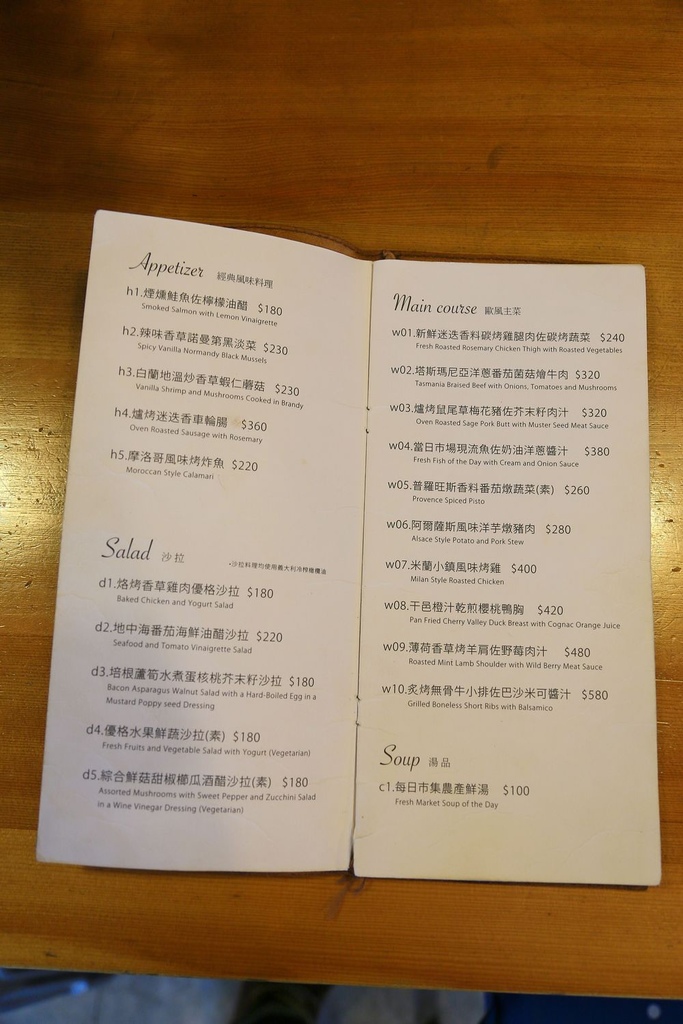 Appetizer 經典風味料理
h1.煙燻鮭魚佐檸檬油醋 $180
Smoked Salmon with Lemon Vinaigrette
h2.辣味香草諾曼第黑淡菜 $230
Spicy Vanilla Normandy Black Mussels
h3.白蘭地溫炒香草蝦仁蘑菇 $230
Vanilla Shrimp and Mushrooms Cooked in Brandy
h4.爐烤迷迭香車輪腸 $360
Oven Roasted Sausage with Rosemary
h5.摩洛哥風味烤炸魚 $220
Moroccan Style Calamari
Salad 沙拉 •沙拉料理均使用義大利冷搾橄欖油
d1.烙烤香草雞肉優格沙拉 $180
Baked Chicken and Yogurt Salad
d2.地中海番茄海鮮油醋沙拉 $220
Seafood and Tomato Vinaigrette Salad
d3.培根蘆筍水煮蛋核桃芥末籽沙拉 $180
Bacon Asparagus Walnut Salad with a Hard-Boiled Egg in a
Mustard Poppy seed Dressing
d4.優格水果鮮蔬沙拉(素) $180
Fresh Fruits and Vegetable Salad with Yogurt (Vegetarian)
d5.綜合鮮菇甜椒櫛瓜酒醋沙拉(素) $180
Assorted Mushrooms with Sweet Pepper and Zucchini Salad
in a Wine Vinegar Dressing (Vegetarian)
Main course 歐風主菜
w01.新鮮迷迭香料碳烤雞腿肉佐碳烤蔬菜 $240
Fresh Roasted Rosemary Chicken Thigh with Roasted Vegetables
w02.塔斯瑪尼亞洋蔥番茄菌菇燴牛肉 $320
Tasmania Braised Beef with Onions, Tomatoes and Mushrooms
w03.爐烤鼠尾草梅花豬佐芥末籽肉汁 $320
Oven Roasted Sage Pork Butt with Muster Seed Meat Sauce
w04.當日市場現流魚佐奶油洋蔥醬汁 $380
Fresh Fish of the Day with Cream and Onion Sauce
w05.普羅旺斯香料番茄燉蔬菜(素) $260
Provence Spiced Pisto
w06.阿爾薩斯風味洋芋燉豬肉 $280
Alsace Style Potato and Pork Stew
w07.米蘭小鎮風味烤雞 $400
Milan Style Roasted Chicken
w08.干邑橙汁乾煎櫻桃鴨胸 $420
Pan Fried Cherry Valley Duck Breast with Cognac Orange Juice
w09.薄荷香草烤羊肩佐野莓肉汁 $480
Roasted Mint Lamb Shoulder with Wild Berry Meat Sauce
w10.炙烤無骨牛小排佐巴沙米可醬汁 $580
Grilled Boneless Short Ribs with Balsamico
Soup 湯品
c1.每日市集農產鮮湯 $100
Fresh Market Soup of the Day